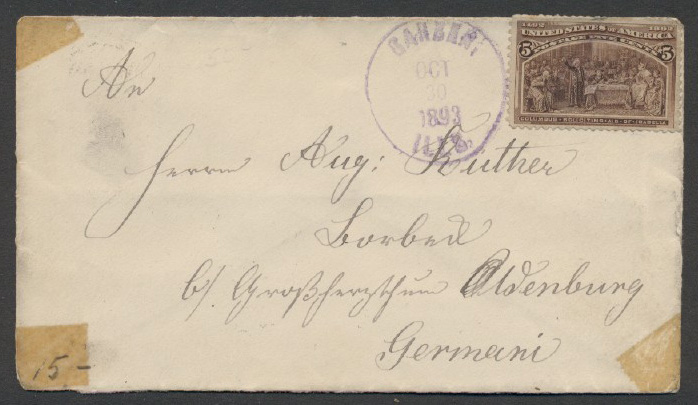 1492 1892
UNITED STATES OF AMERICA
5 POSTAGE FIVE CENTS 5
COLUMBUS SOLICITING AID OF ISABELLA
OCT
30
1893
ILLS.
An
Herrn Aug: Kuther
Borbeck
b/ Großherzthum Oldenburg
Germani
15-